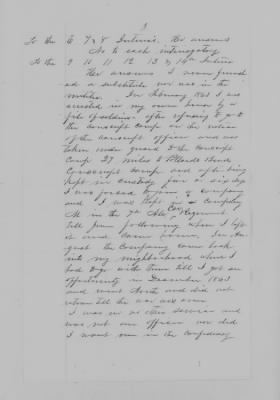 3
To the 6 7 & 8 Interrie. He answers
No to each interrogatory
To the 9 10 11 12 13 & 14th Inter
He answers I never furnish
ed a substitute nor was in the
militia. In February 1863 I was
arrested in my own house by a
of soldiers after refusing to go to
the conscript camp on the notice
of the conscript officer and was
taken under guard to the conscript
Camp 27 miles to Bend
Conscript camp and after being
kept in custody five or six days
I was forced to join a company
and I was kept in a Company
M in the 7th Ala Cav Regiment
till June following when I left
it and came home. In Au
gust the Company came back
into my neighborhood where I
had Dogs with them till I got an
opportunity in December 1863
and went North and did not
return till the war was over
I was in no other service and
was not an officer nor did
I want one in the Confederacy